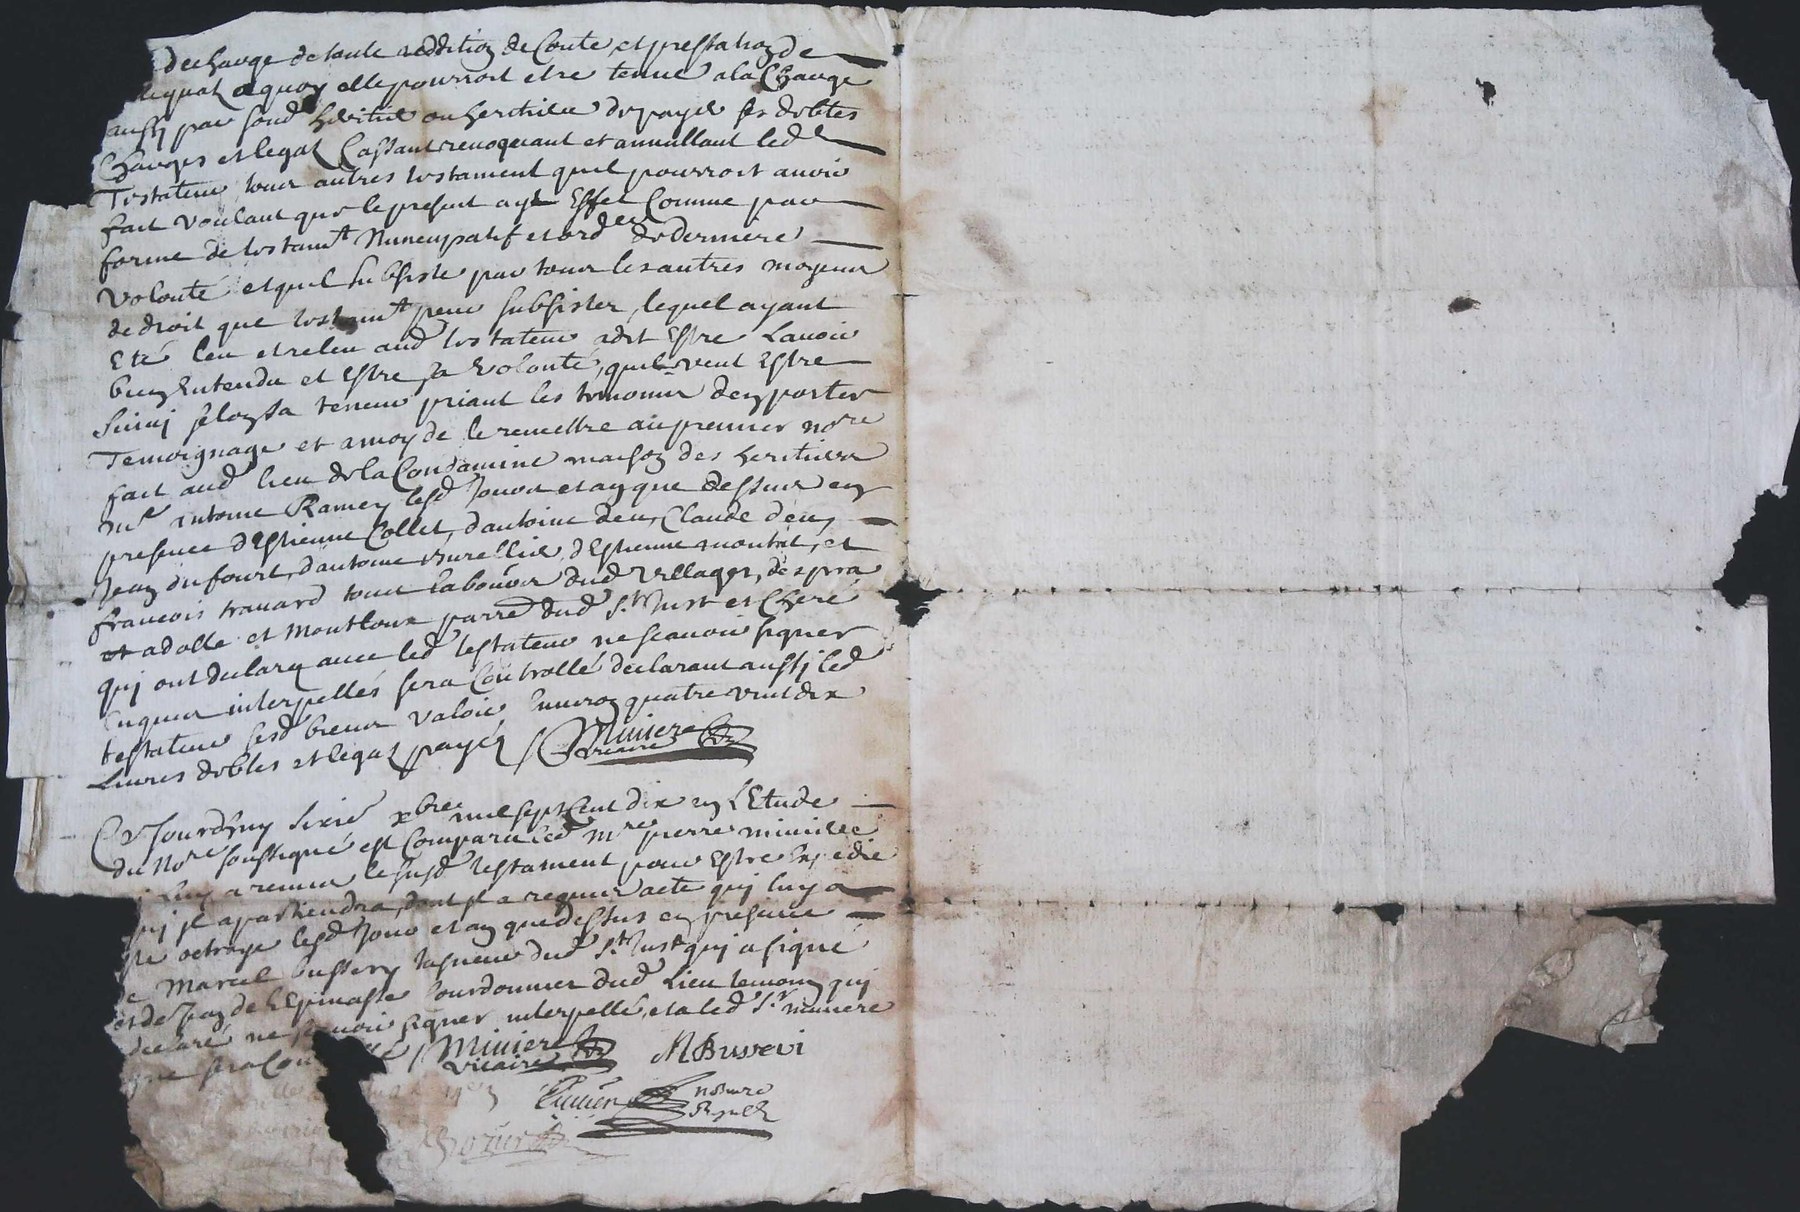 decharge de toute reddition de Conte, et prestation de
reliquat a quoy elle pourroit etre tenue a la Charge
aussy par sond heritier ou heritiere de payer ses debtes
Charges et legat Cassant revoquant et annullant led
Testateur tour autres testament quil pourroit avoir
fait voulant que le present ayt Effet Comme par
forme de testamt Nuncupatif et ordre de derniere
volonté et quil subsiste par tour les autres moyeur
de droit que testamt peut subsister, lequel ayant
Eté leu et releu aud testateur a dit Estre Lavoir
bien Entendu et Estre sa volonté, quil veut Estre
suivi selon sa teneur priant les temoinr den porter
Temoignage et a moy de le remettre au premier nore
fait aud lieu de la Condamine maison des heritierr
mre antoine Ramey lesd Jourt et an que dessur en
presence d'Estienne Collet, dantoine deu, Claude deu,
Jean dufourt, dantoine Burellier, d'Estienne montet, et
francois travard tour laboúrr dud villager, de
et adolle et Montloux parre dud St Just et Cheré
qui ont declaré avec led testateur ne scavoir signer
Enquir interpellés sera Controllé declarant aussi led
testateur sesd bienr valoir Environ quatre vint dix
Livres debtes et legat payés / Miniere
vicaire
Ce Jourdhuy sixie xbre mil sept Cent dix en l'Etude
du Nore soussigné est Comparu led mre pierre miniere
Luy a remir le susd testament pour Estre Expedié
qui il apartiendra, dont il a requir acte qui luy a
este octroyé lesd Jour et an que dessus en presence
de Marcel bussery tasneur dud St Just qui a signé
et de Jean de lEpinasse Courdonnier dud Lieu temoin qui
declaré ne scavoir signer interpellé, et a led Sr miniere
signé sera Con lé / Miniere
vicaire
M Bussevi
notaire
Royal